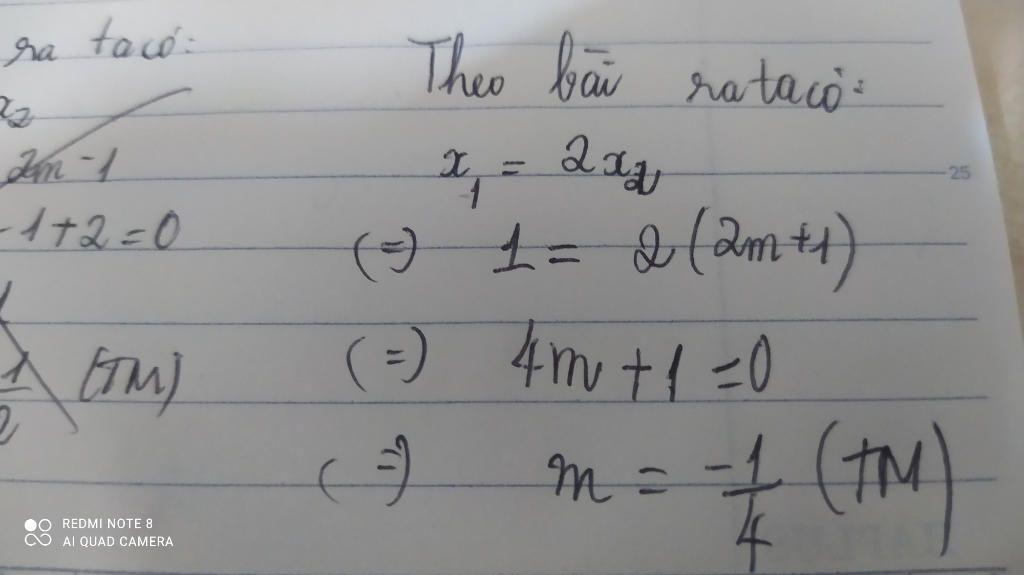 ra ta có:
x2
2m-1
-1+2=0
1/2 (TM)
Theo bài ra ta có:
x1 = 2x2
(=) 1 = 2(2m+1)
(=) 4m+1=0
(=) m = -1/4 (TM)
25
REDMI NOTE 8
AI QUAD CAMERA